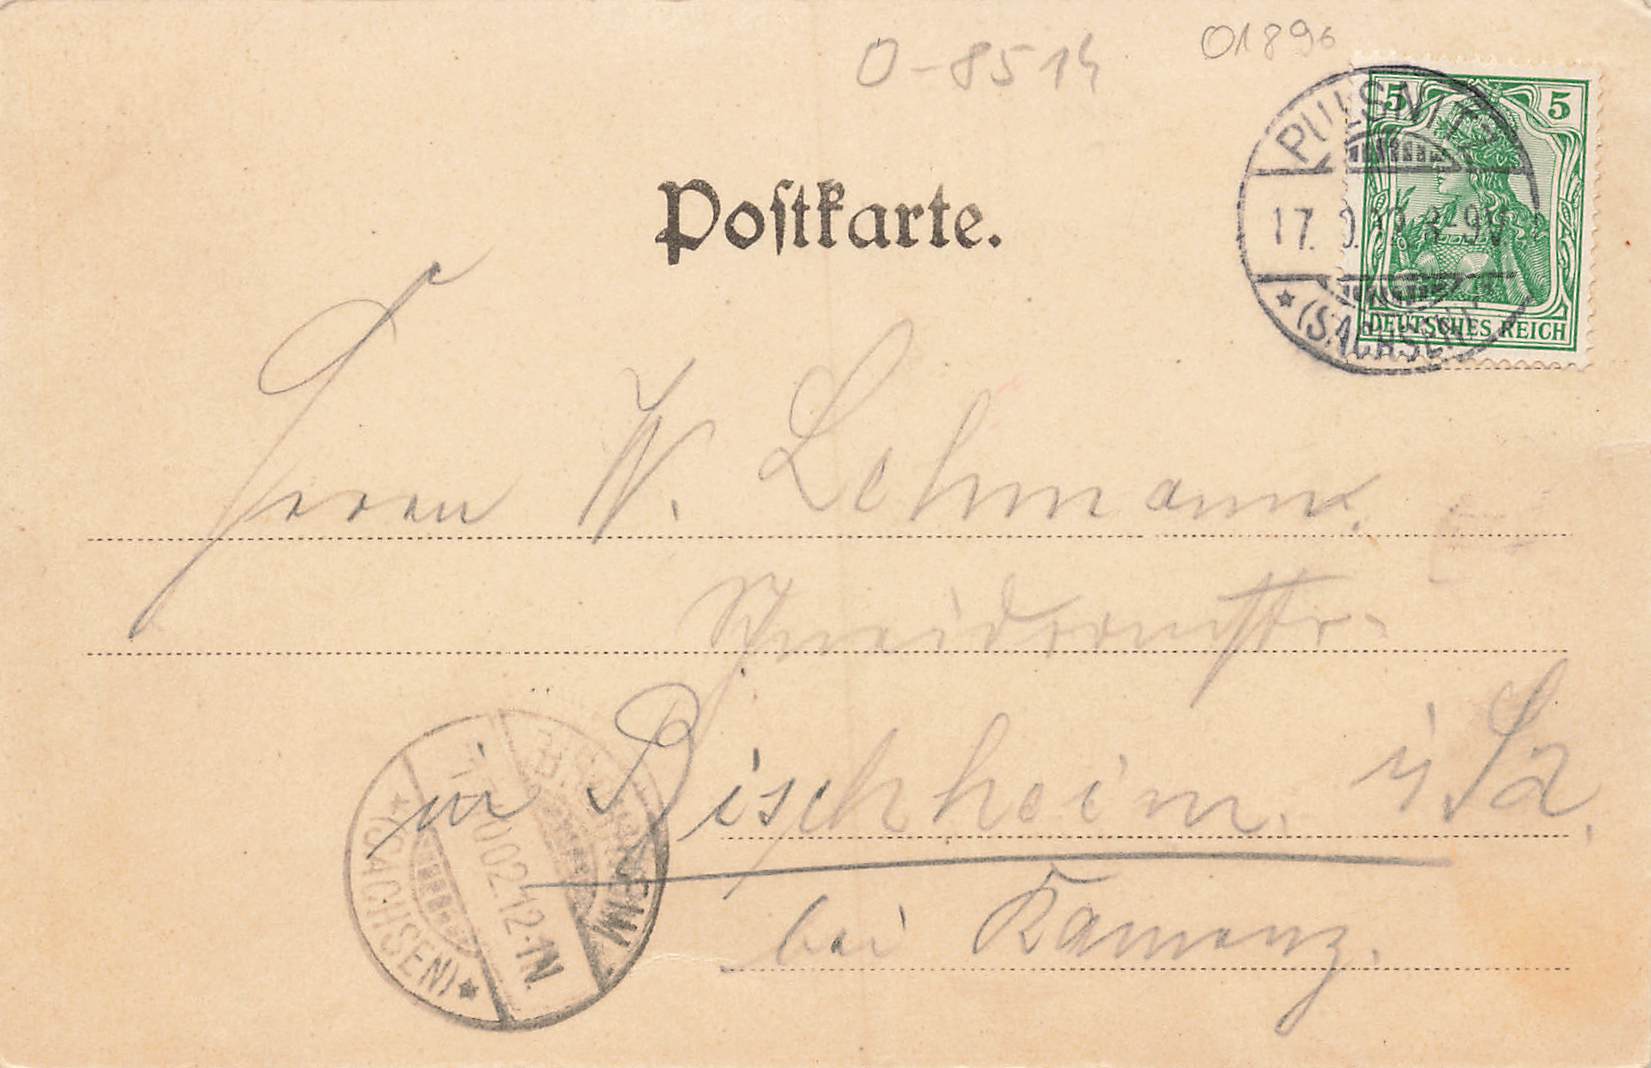 O-8514
01896
5 5
DEUTSCHES REICH
PULSNITZ
17. 8-9V
* (SACHSEN)
Postkarte.
Herrn W. Lehmann.
Schneidermstr.
in Bischheim i/Sa.
bei Kamenz.
BISCHHEIM
02.12-1N.
* (SACHSEN) *